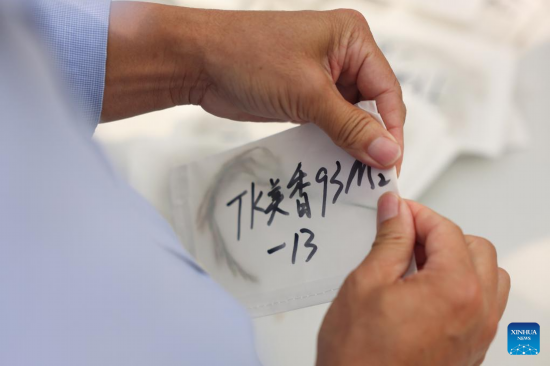 TK美香93M2
-13
XINHUA
NEWS